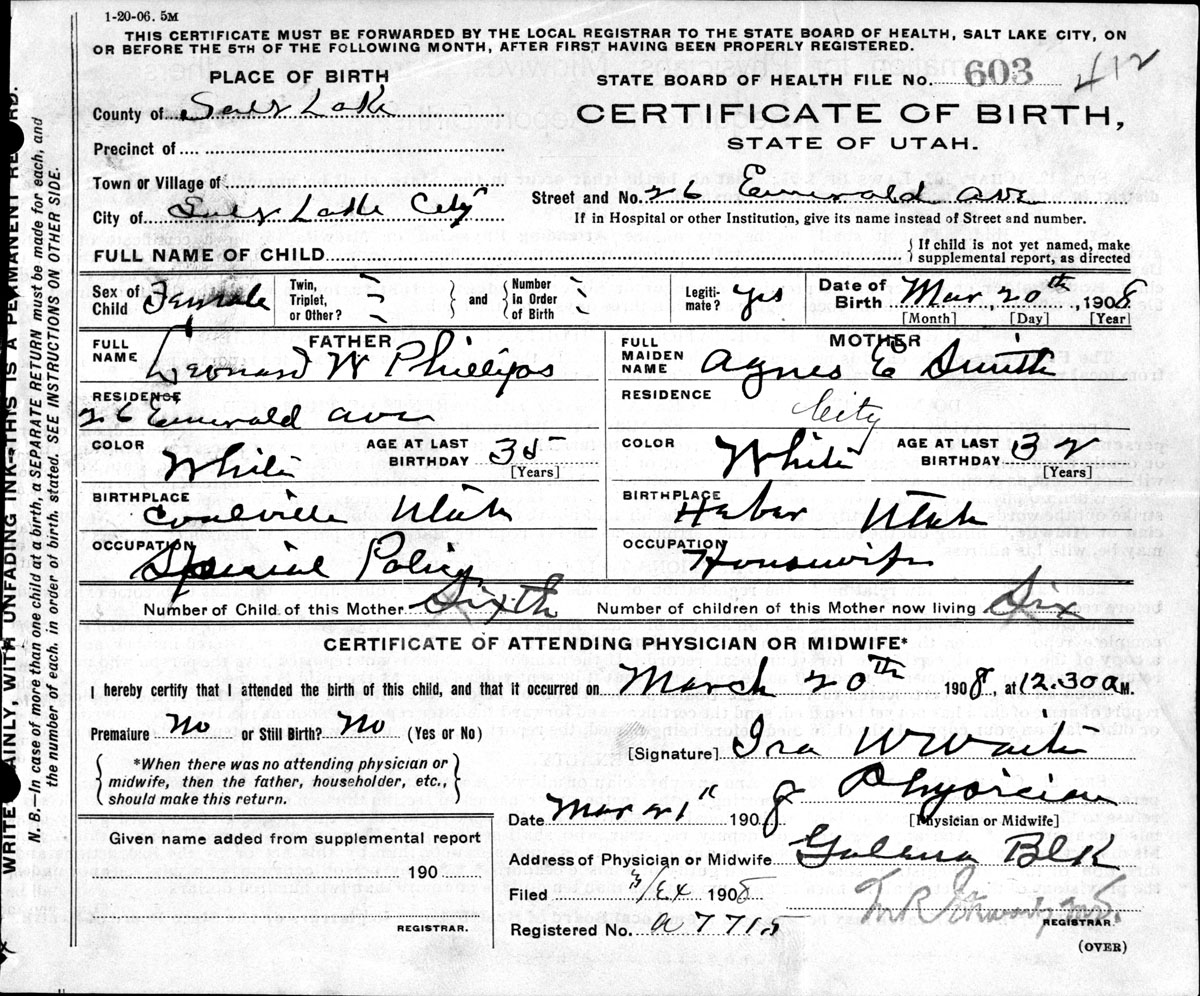 1-20-06. 5M
THIS CERTIFICATE MUST BE FORWARDED BY THE LOCAL REGISTRAR TO THE STATE BOARD OF HEALTH, SALT LAKE CITY, ON
OR BEFORE THE 5TH OF THE FOLLOWING MONTH, AFTER FIRST HAVING BEEN PROPERLY REGISTERED.
PLACE OF BIRTH
STATE BOARD OF HEALTH FILE NO. 603 412
County of Salt Lake
CERTIFICATE OF BIRTH,
Precinct of
STATE OF UTAH.
Town or Village of
Street and No. 26 Emerald ave
City of Salt Lake City
If in Hospital or other Institution, give its name instead of Street and number.
FULL NAME OF CHILD { If child is not yet named, make
supplemental report, as directed
Sex of Child Female
Twin, Triplet, or Other?
and Number in Order of Birth
Legitimate? yes
Date of Birth Mar 20th, 1908
[Month] [Day] [Year]
FATHER
FULL NAME Leonard W Phillips
RESIDENCE
26 Emerald ave
COLOR White AGE AT LAST BIRTHDAY 35 [Years]
BIRTHPLACE
Coalville Utah
OCCUPATION
Special Police
MOTHER
FULL MAIDEN NAME Agnes E Smith
RESIDENCE
City
COLOR White AGE AT LAST BIRTHDAY 32 [Years]
BIRTHPLACE
Heber Utah
OCCUPATION
Housewife
Number of Child of this Mother Sixth Number of children of this Mother now living Six
CERTIFICATE OF ATTENDING PHYSICIAN OR MIDWIFE*
I hereby certify that I attended the birth of this child, and that it occurred on March 20th 1908, at 12.30 a M.
Premature No or Still Birth? No (Yes or No)
[Signature] Ira W
{ *When there was no attending physician or
midwife, then the father, householder, etc.,
should make this return. }
Physician
Date Mar 21" 1908 [Physician or Midwife]
Given name added from supplemental report
190
REGISTRAR.
Address of Physician or Midwife Galena Blk
Filed 1908
REGISTRAR.
Registered No.
(OVER)
WRITE PLAINLY, WITH UNFADING INK—THIS IS A PERMANENT RECORD.
N. B.—In case of more than one child at a birth, a SEPARATE RETURN must be made for each, and
the number of each, in order of birth, stated. SEE INSTRUCTIONS ON OTHER SIDE.